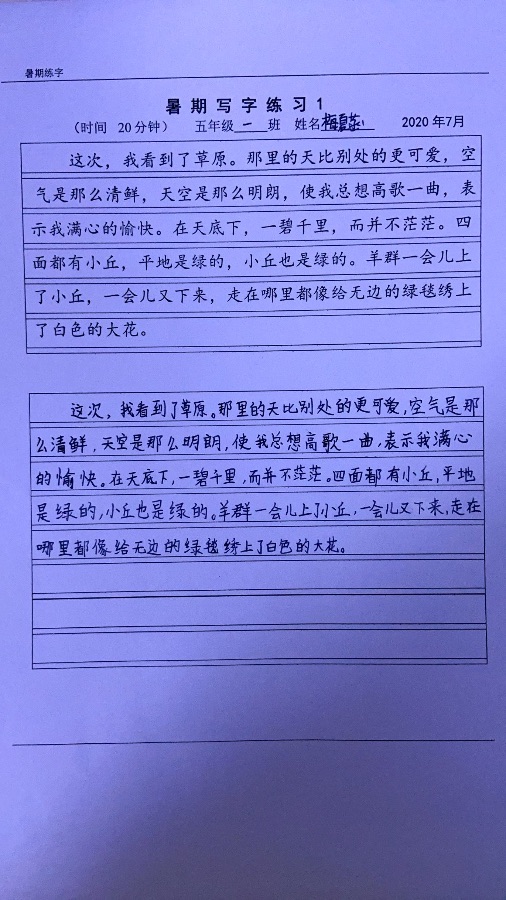 暑期练字
暑期写字练习1
（时间 20分钟） 五年级 一 班 姓名 梅 2020年7月
这次，我看到了草原。那里的天比别处的更可爱，空
气是那么清鲜，天空是那么明朗，使我总想高歌一曲，表
示我满心的愉快。在天底下，一碧千里，而并不茫茫。四
面都有小丘，平地是绿的，小丘也是绿的。羊群一会儿上
了小丘，一会儿又下来，走在哪里都像给无边的绿毯绣上
了白色的大花。
这次，我看到了草原。那里的天比别处的更可爱，空气是那
么清鲜，天空是那么明朗，使我总想高歌一曲，表示我满心
的愉快。在天底下，一碧千里，而并不茫茫。四面都有小丘，平地
是绿的，小丘也是绿的。羊群一会儿上了小丘，一会儿又下来，走在
哪里都像给无边的绿毯绣上了白色的大花。